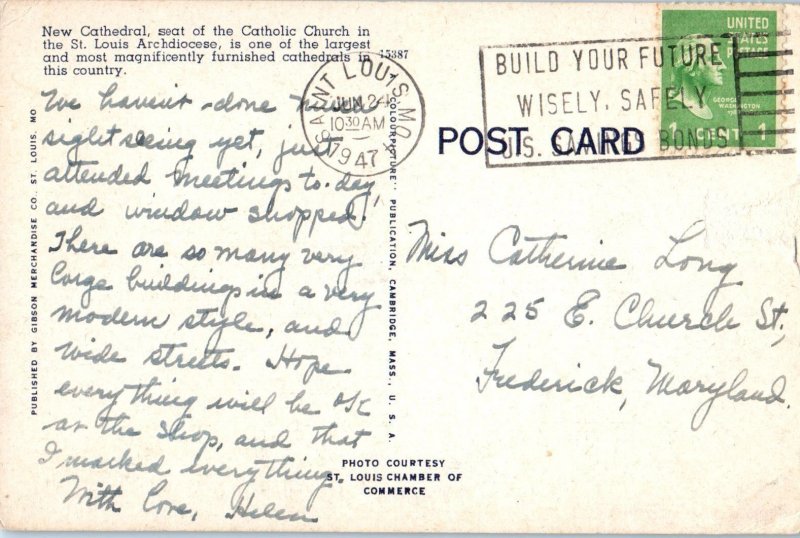 New Cathedral, seat of the Catholic Church in
the St. Louis Archdiocese, is one of the largest
and most magnificently furnished cathedrals in
this country.
15387
We haven't done much
sightseeing yet, just
attended meetings to-day,
and window shopped.
There are so many very
large buildings in a very
modern style, and
wide streets. Hope
everything will be OK
at the shop, and that
I marked everything.
With love, Helen
PUBLISHED BY GIBSON MERCHANDISE CO. ST. LOUIS, MO
"COLOURPICTURE" PUBLICATION, CAMBRIDGE, MASS., U. S. A.
SAINT LOUIS, MO.
JUN 24
10 30 AM
1947
BUILD YOUR FUTURE
WISELY, SAFELY
U.S. SAVINGS BONDS
UNITED
STATES
POSTAGE
GEORGE
WASHINGTON
1 CENT 1
POST CARD
Miss Catherine Long
225 E. Church St,
Frederick, Maryland.
PHOTO COURTESY
ST. LOUIS CHAMBER OF
COMMERCE